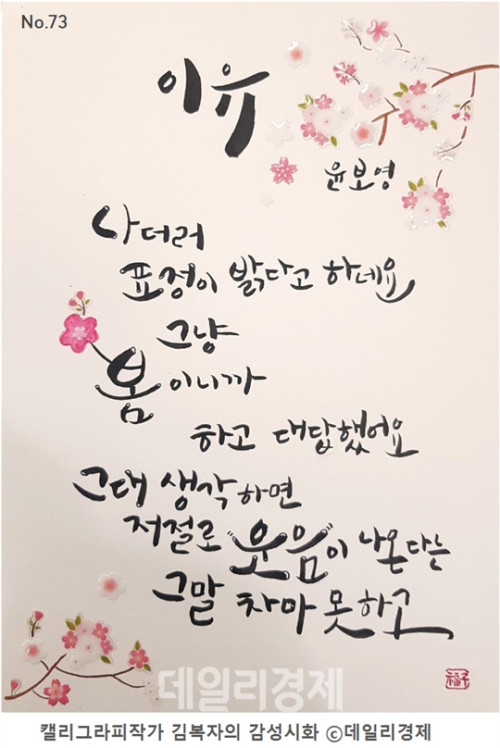 No.73
이유
윤보영
나더러
표정이 밝다고 하네요
그냥
봄이니까
하고 대답했어요
그대 생각하면
저절로 "웃음"이 나온다는
그말 차마 못하고
데일리경제
캘리그라피작가 김복자의 감성시화 ⓒ데일리경제